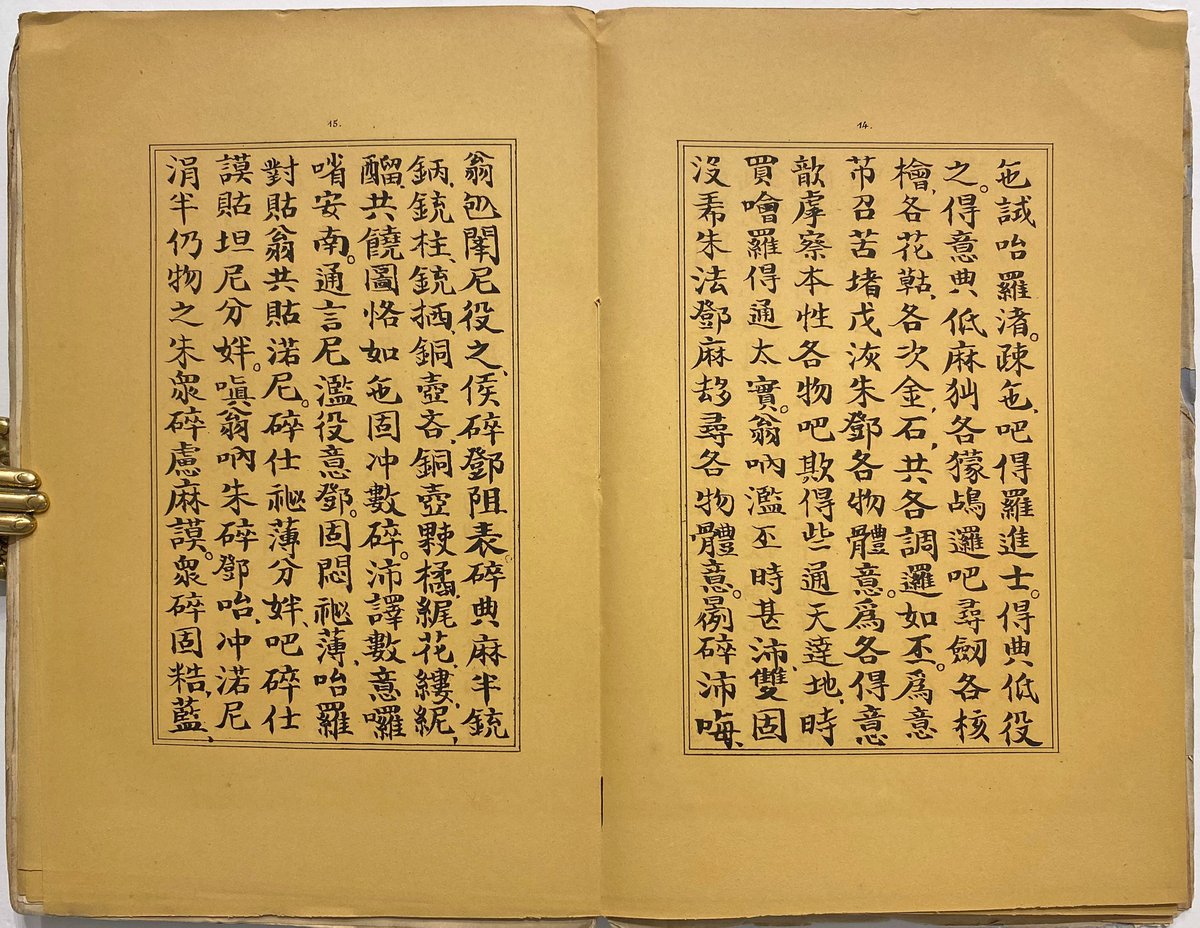 14.
㐌試咍羅渚。疎㐌、吧得羅進士。得典低役
之。得意典低麻各獴鴣邏吧尋劒各核
檜、各花、各次金、石、共各調邏如丕。爲意
芇召苦堵戊洃朱鄧各物體意。爲各得意
歆虖察本性各物吧欺得些通天達地、時
買噲羅得通太實。翁吶濫丕時甚沛、雙固
沒朱法鄧麻尋各物體意。碎沛㖼、
15.
翁闡尼役之、俟碎鄧阻表。碎典麻半銃
鈵、銃柱、銃拪、銅壺吝、銅壺橘、絾花、縷、絾、
醹、共饒圖恪如㐌固冲數碎。沛譯數意囉
哨安南。通言尼濫役意鄧。固悶祕薄、咍羅
對貼翁共貼渃尼。碎仕祕薄分姅、吧碎仕
謨貼坦尼分姅。嗔翁吶朱碎鄧咍、冲渃尼
涓半仍物之朱衆碎慮麻謨。衆碎固粩、藍、